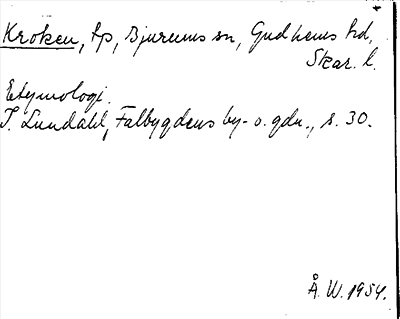 Kroken, tp, Bjurums sn, Gudhems hd,
Skar. l.
Etymologi.
I. Lundahl, Falbygdens by- o. gdn., s. 30.
Å. W. 1954.